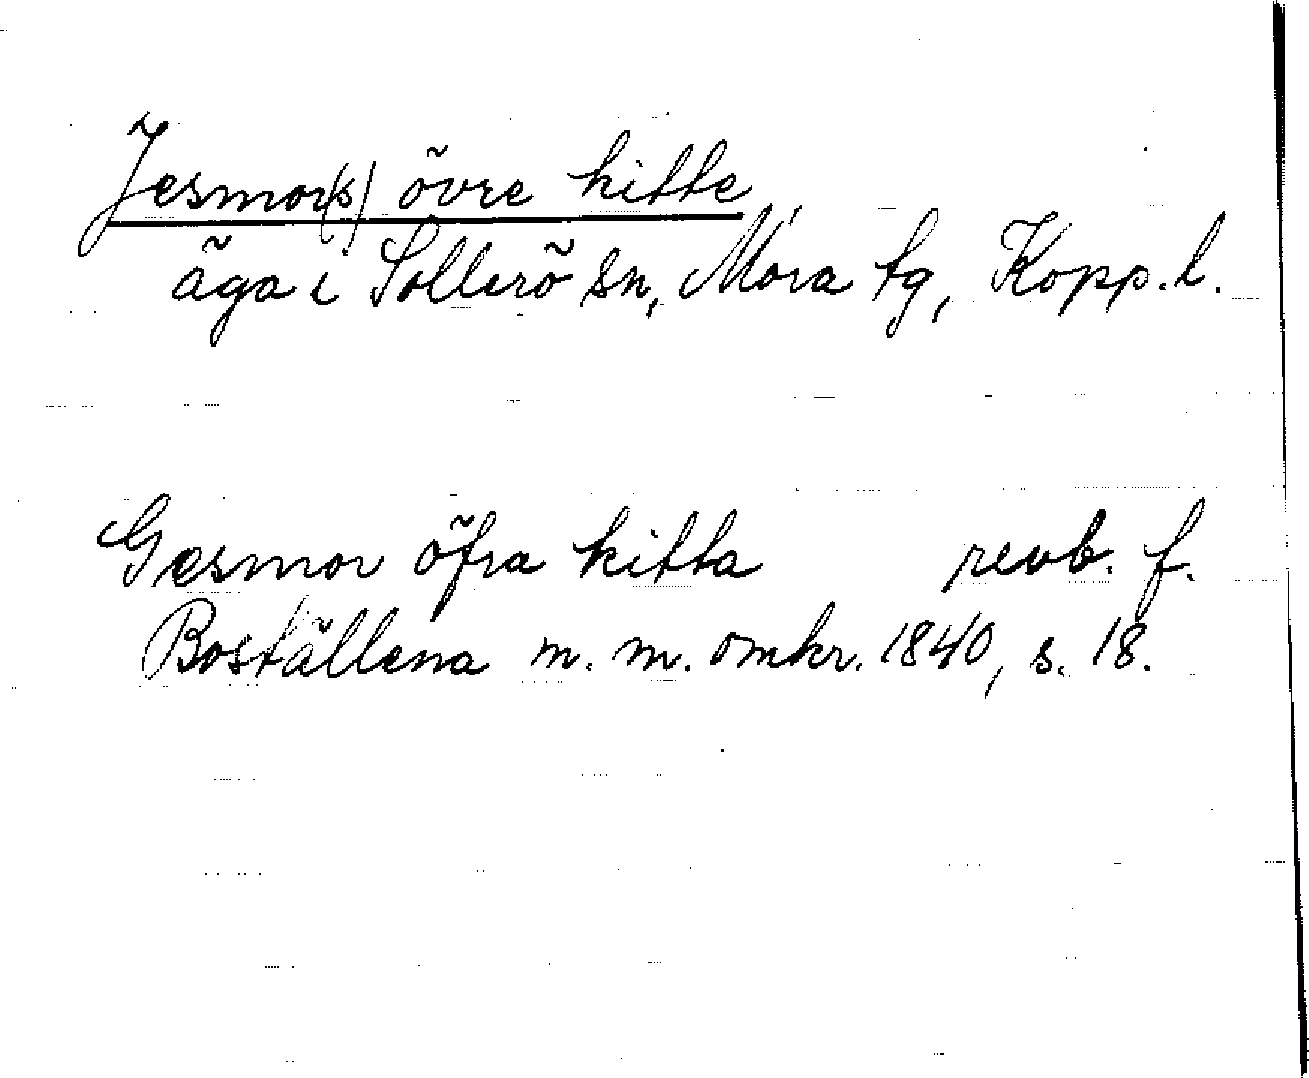 Jesmor(s) övre kitte
äga i Sollerö sn, Mora tg, Kopp. l.
Gesmor öfra kitta revb. f.
Boställena m. m. omkr. 1840, s. 18.